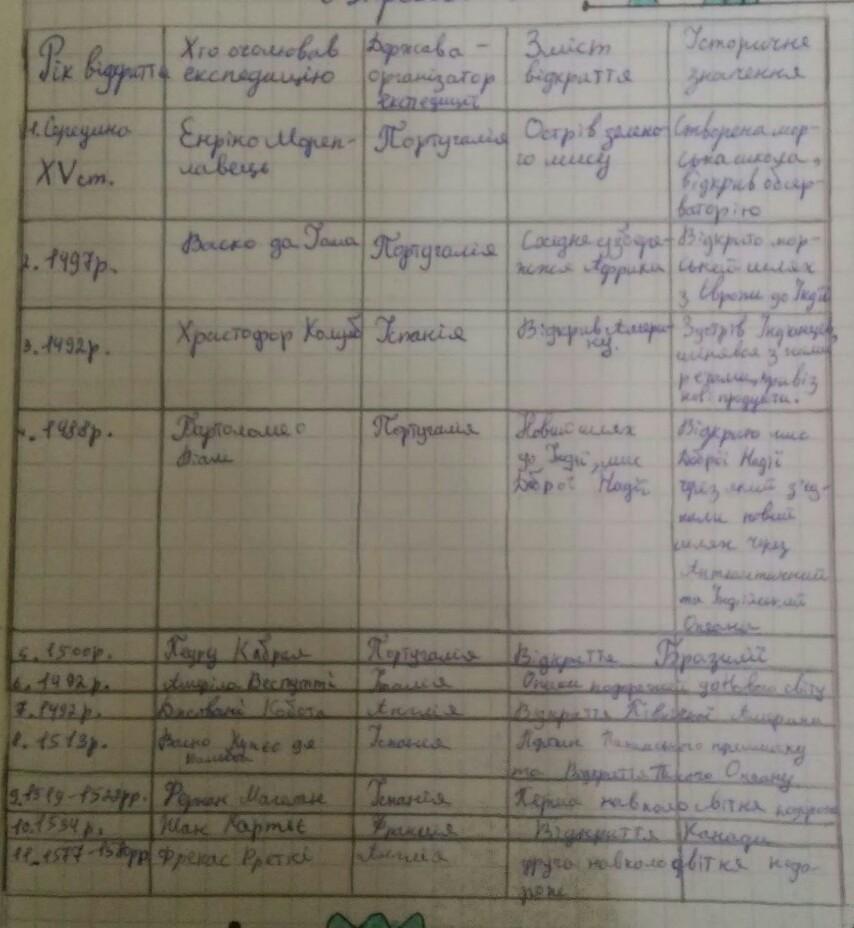 Рік відкриття
Хто очолював
експедицію
Держава -
організатор
експедиції
Зміст
відкриття
Історичне
значення
1. Середина
XV ст.
Енріке Мореп-
лавець
Португалія
Острів зелено-
го мису
Створена мор-
ська школа,
відкрив обсер-
ваторію
2. 1497р.
Васко да Гама
Португалія
Східне узбере-
жжя Африки
Відкрито мор-
ський шлях
з Європи до Індії
3. 1492р.
Христофор Колумб
Іспанія
Відкрив Амери-
ку.
Зустрів Індіанців,
з ними
привіз
нові продукти.
4. 1488р.
Бартоломео
Португалія
Новий шлях
до Індії, мис
Доброї Надії
Відкрито мис
Доброї Надії
через який з'єд-
нали новий
шлях через
Антлантичний
та Індійський
Океани
5. 1500р.
Педру Кабрал
Португалія
Відкриття Бразилії
6. 1492р.
Веспуччі
Італія
подорожей до Нового світу
7. 1492р.
Джовані Кабота
Англія
Відкриття Північної Америки
8. 1513р.
Васко Нуньес де
Іспанія
Панамського перешийку
та Відкриття Тихого Океану
9. 1519-1522рр.
Фернан Магелан
Іспанія
Перша навколосвітня подорож
10. 1534р.
Жак Картьє
Франція
Відкриття Канади
11. 1577-1580рр
Англія
друга навколосвітня подо-
рож